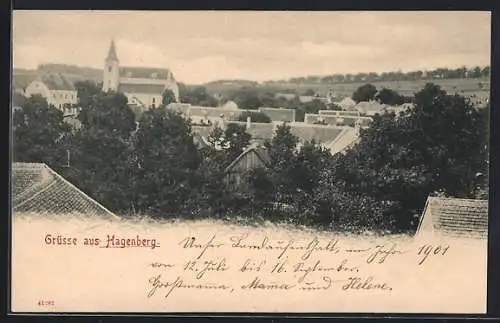 Grüsse aus Hagenberg
Unser Landaufenthalt im Jahre 1901
von 12. Juli bis 16. September.
Großmama, Mama und Helene.